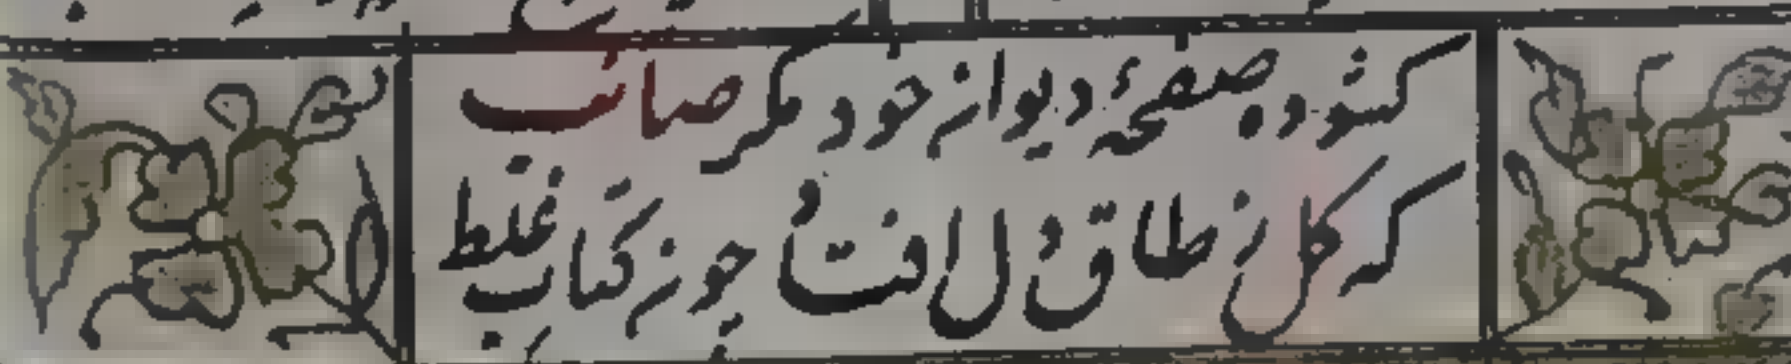 کشوده صفحهٔ دیوان خود مکر صائب
که کل ز طاق دل افتاد چون کتاب غلط